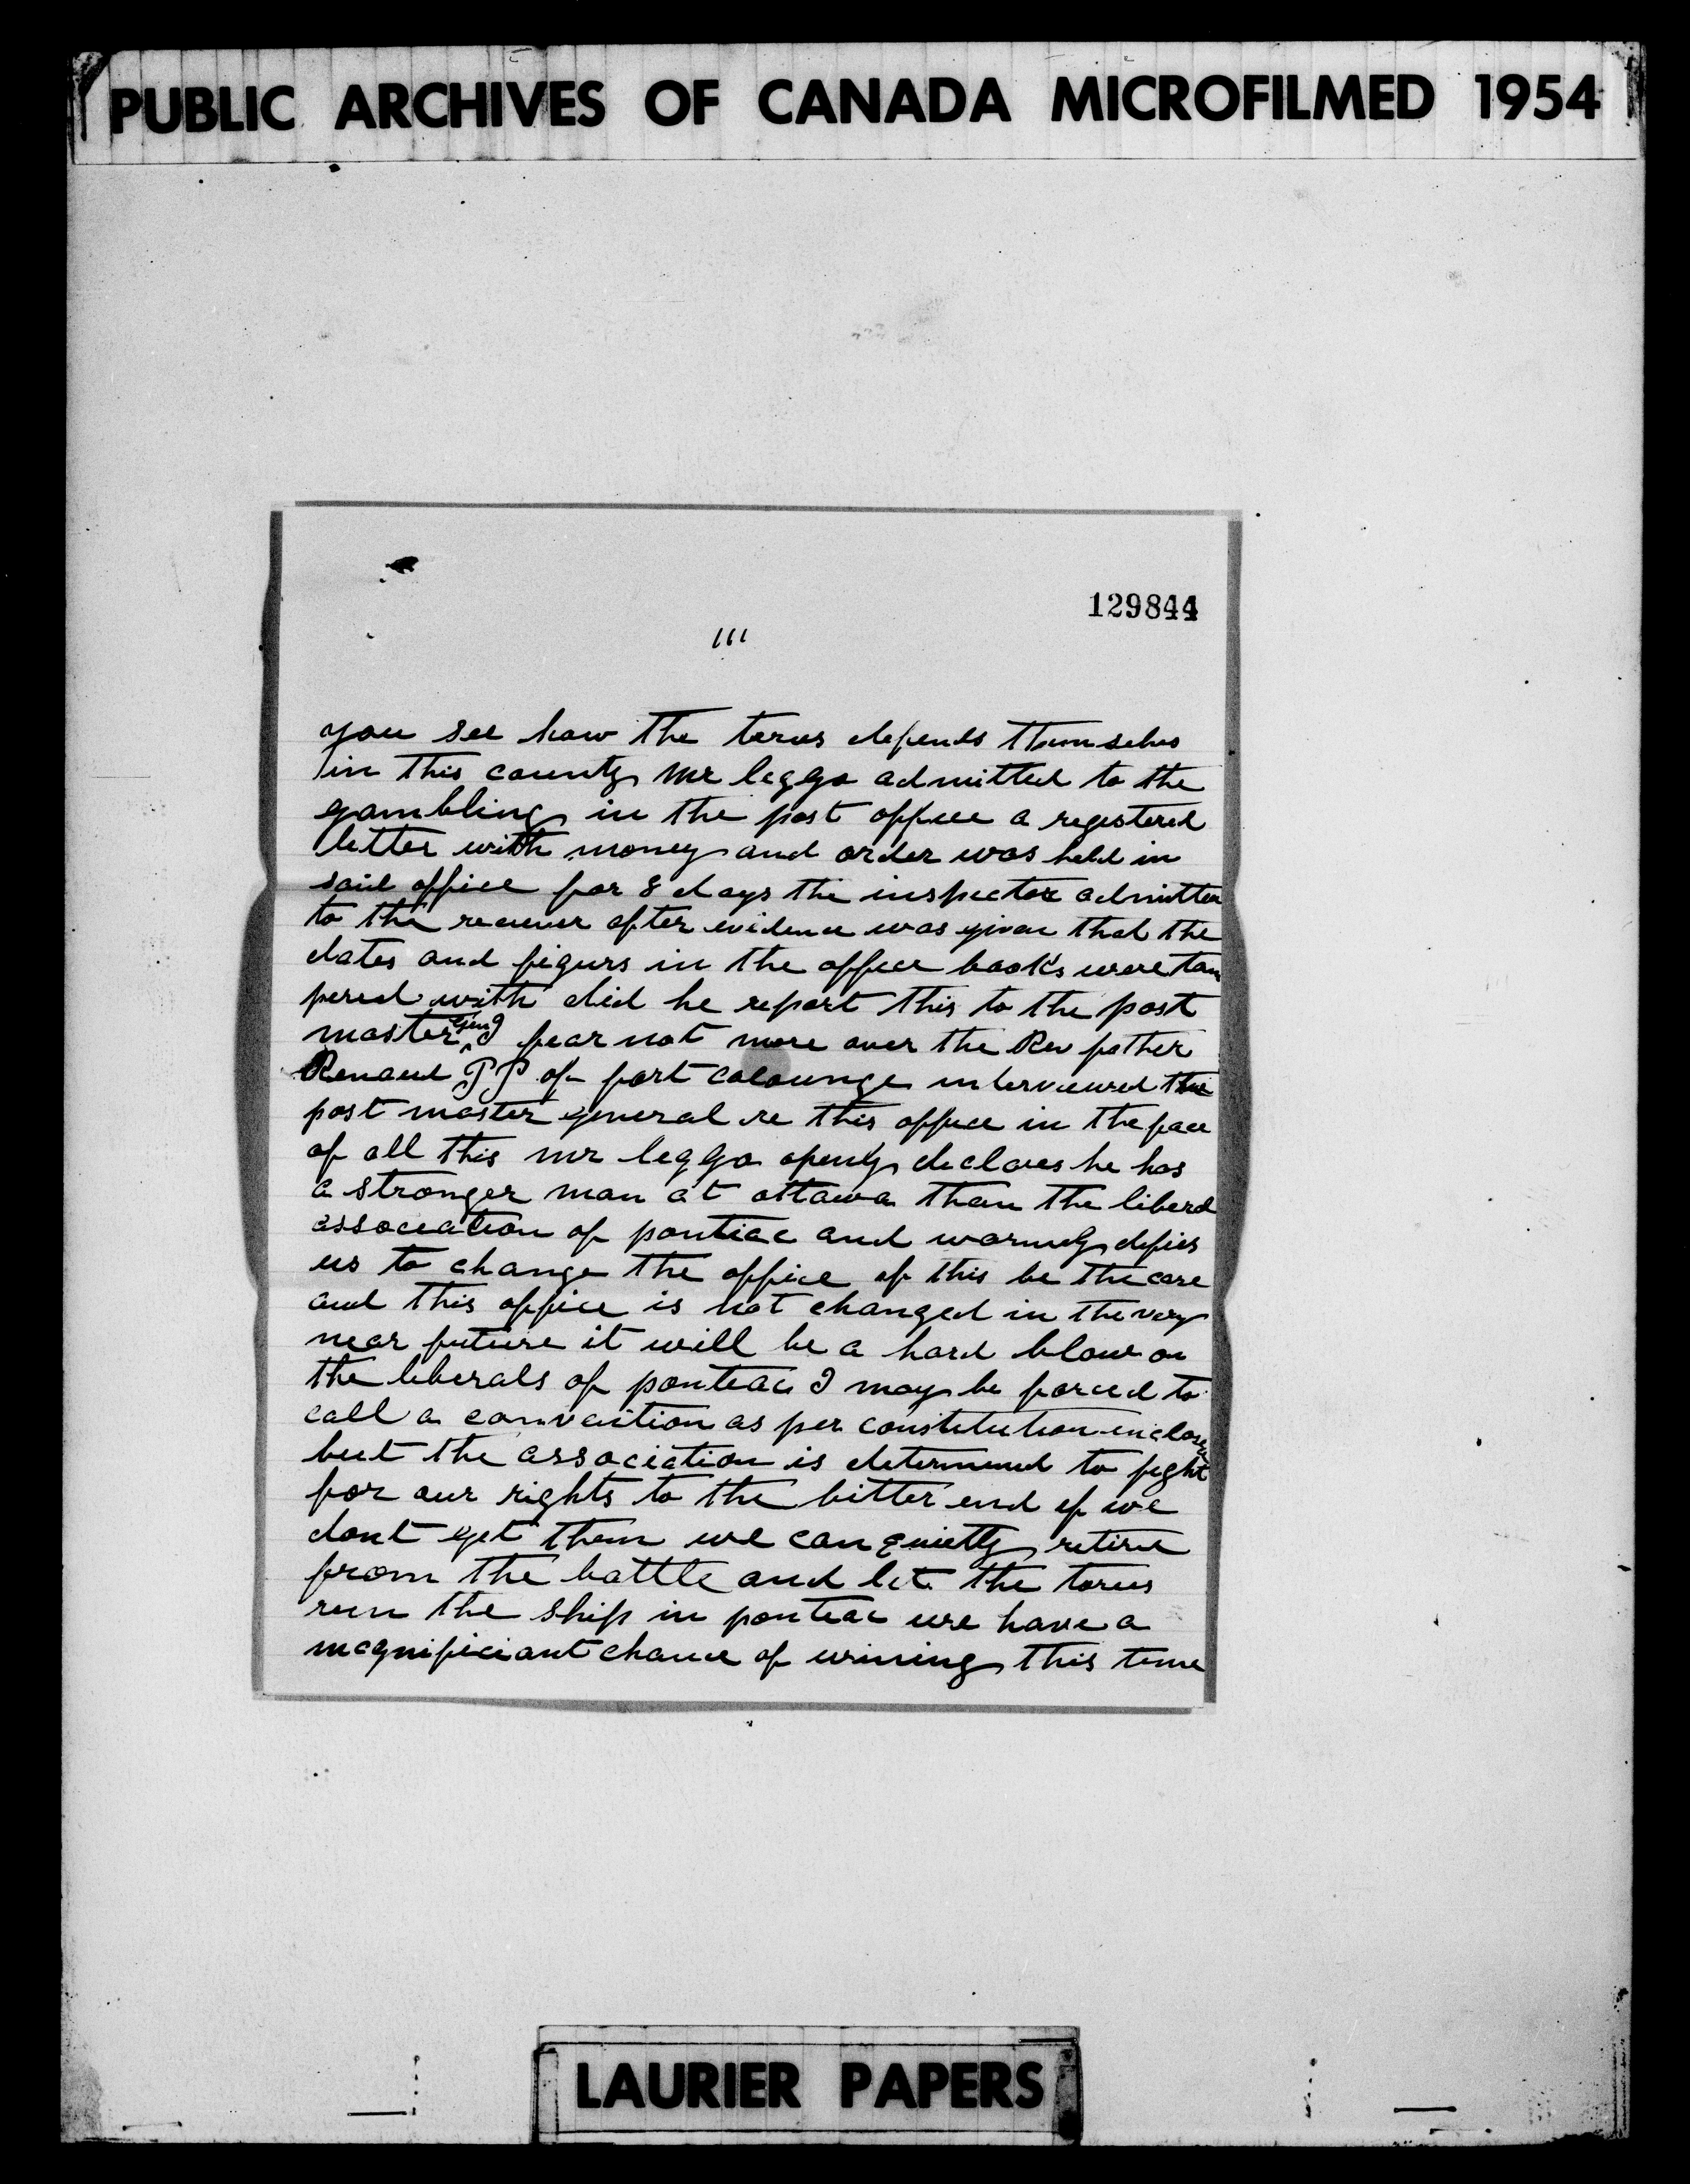 PUBLIC ARCHIVES OF CANADA MICROFILMED 1954
129844
111
you see how the tories defends themselves
in this county Mr leggo admitted to the
gambling in the post office a registered
letter with money and order was held in
said office for 8 days the inspector admitted
to the reciever after evidence was given that the
dates and figurs in the office books were tam
pered with did he report this to the post
master genl I fear not more over the Rev father
Renaud P P of fort coulounge interviewed the
post master general re this office in the face
of all this mr leggo openly declares he has
a stronger man at ottawa than the liberal
association of pontiac and warmly defies
us to change the office if this be the case
and this office is not changed in the very
near future it will be a hard blow on
the liberals of pontiac I may be forced to
call a convention as per constitution inclosed
but the association is determined to fight
for our rights to the bitter end if we
dont get them we can quietly retire
from the battle and let the tories
run the ship in pontiac we have a
magnificiant chance of wining this time
LAURIER PAPERS